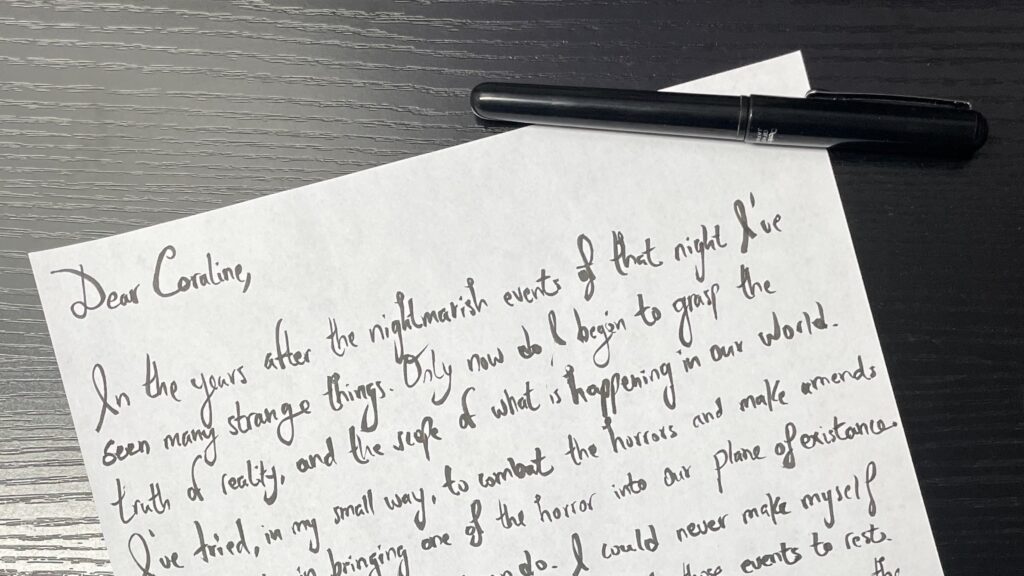 Dear Coraline,
In the years after the nightmarish events of that night I've
seen many strange things. Only now do I begin to grasp the
truth of reality, and the scope of what is happening in our world.
I've tried, in my small way, to combat the horrors and make amends
in bringing one of the horror into our plane of existance.
do. I could never make myself
those events to rest.
the